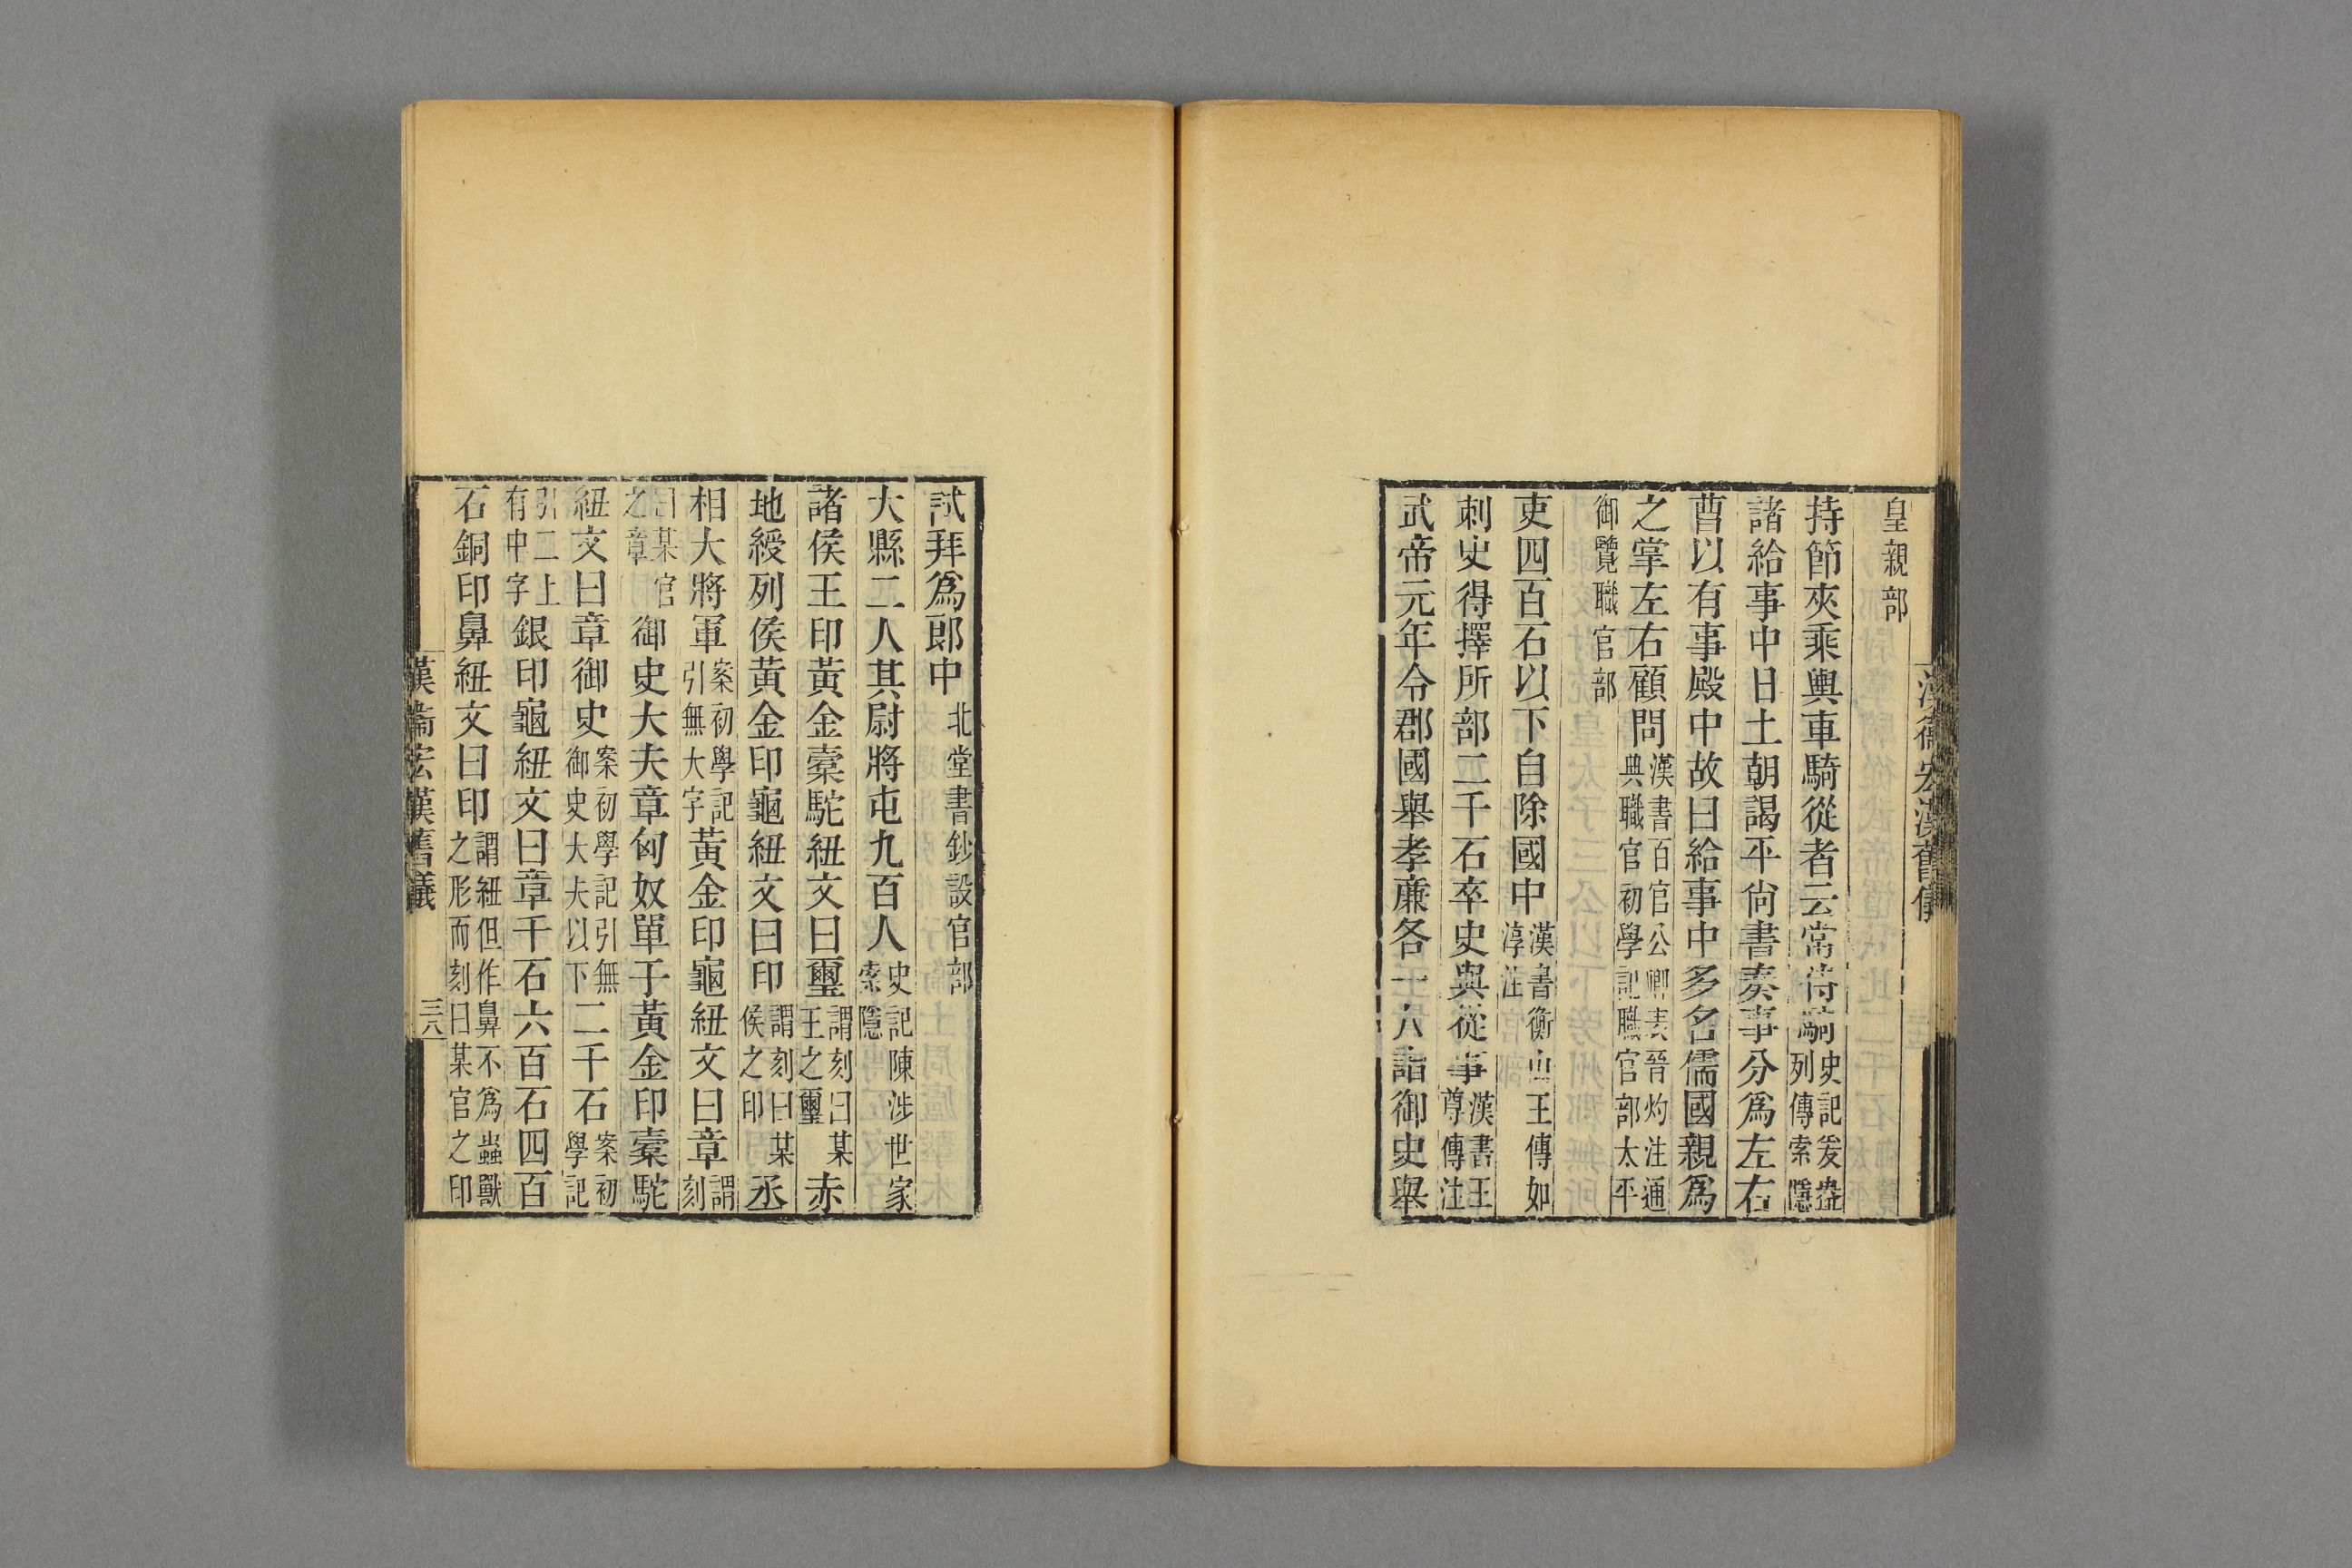 皇親部
持節夾乘輿車騎從者云常侍騎史記爰盎列傳索隱
諸給事中日上朝謁平尚書奏事分爲左右
曹以有事殿中故曰給事中多名儒國親爲
之掌左右顧問漢書百官公卿表晉灼注通典職官初學記職官部太平
御覽職官部
吏四百石以下自除國中漢書衡山王傳如淳注
刺史得擇所部二千石卒史與從事漢書王尊傳注
武帝元年令郡國舉孝廉各一人詣御史舉
試拜爲郎中北堂書鈔設官部
大縣二人其尉將屯九百人史記陳涉世家索隱
諸侯王印黃金橐駝紐文曰璽謂刻曰某王之璽赤
地綬列侯黃金印龜紐文曰印謂刻曰某侯之印丞
相大將軍案初學記引無大字黃金印龜紐文曰章謂刻
曰某官之章御史大夫章匈奴單于黃金印橐駝
紐文曰章御史案初學記引無御史大夫以下二千石案初學記
引二上有中字銀印龜紐文曰章千石六百石四百
石銅印鼻紐文曰印謂紐但作鼻不爲蟲獸之形而刻曰某官之印
漢衛宏漢舊儀